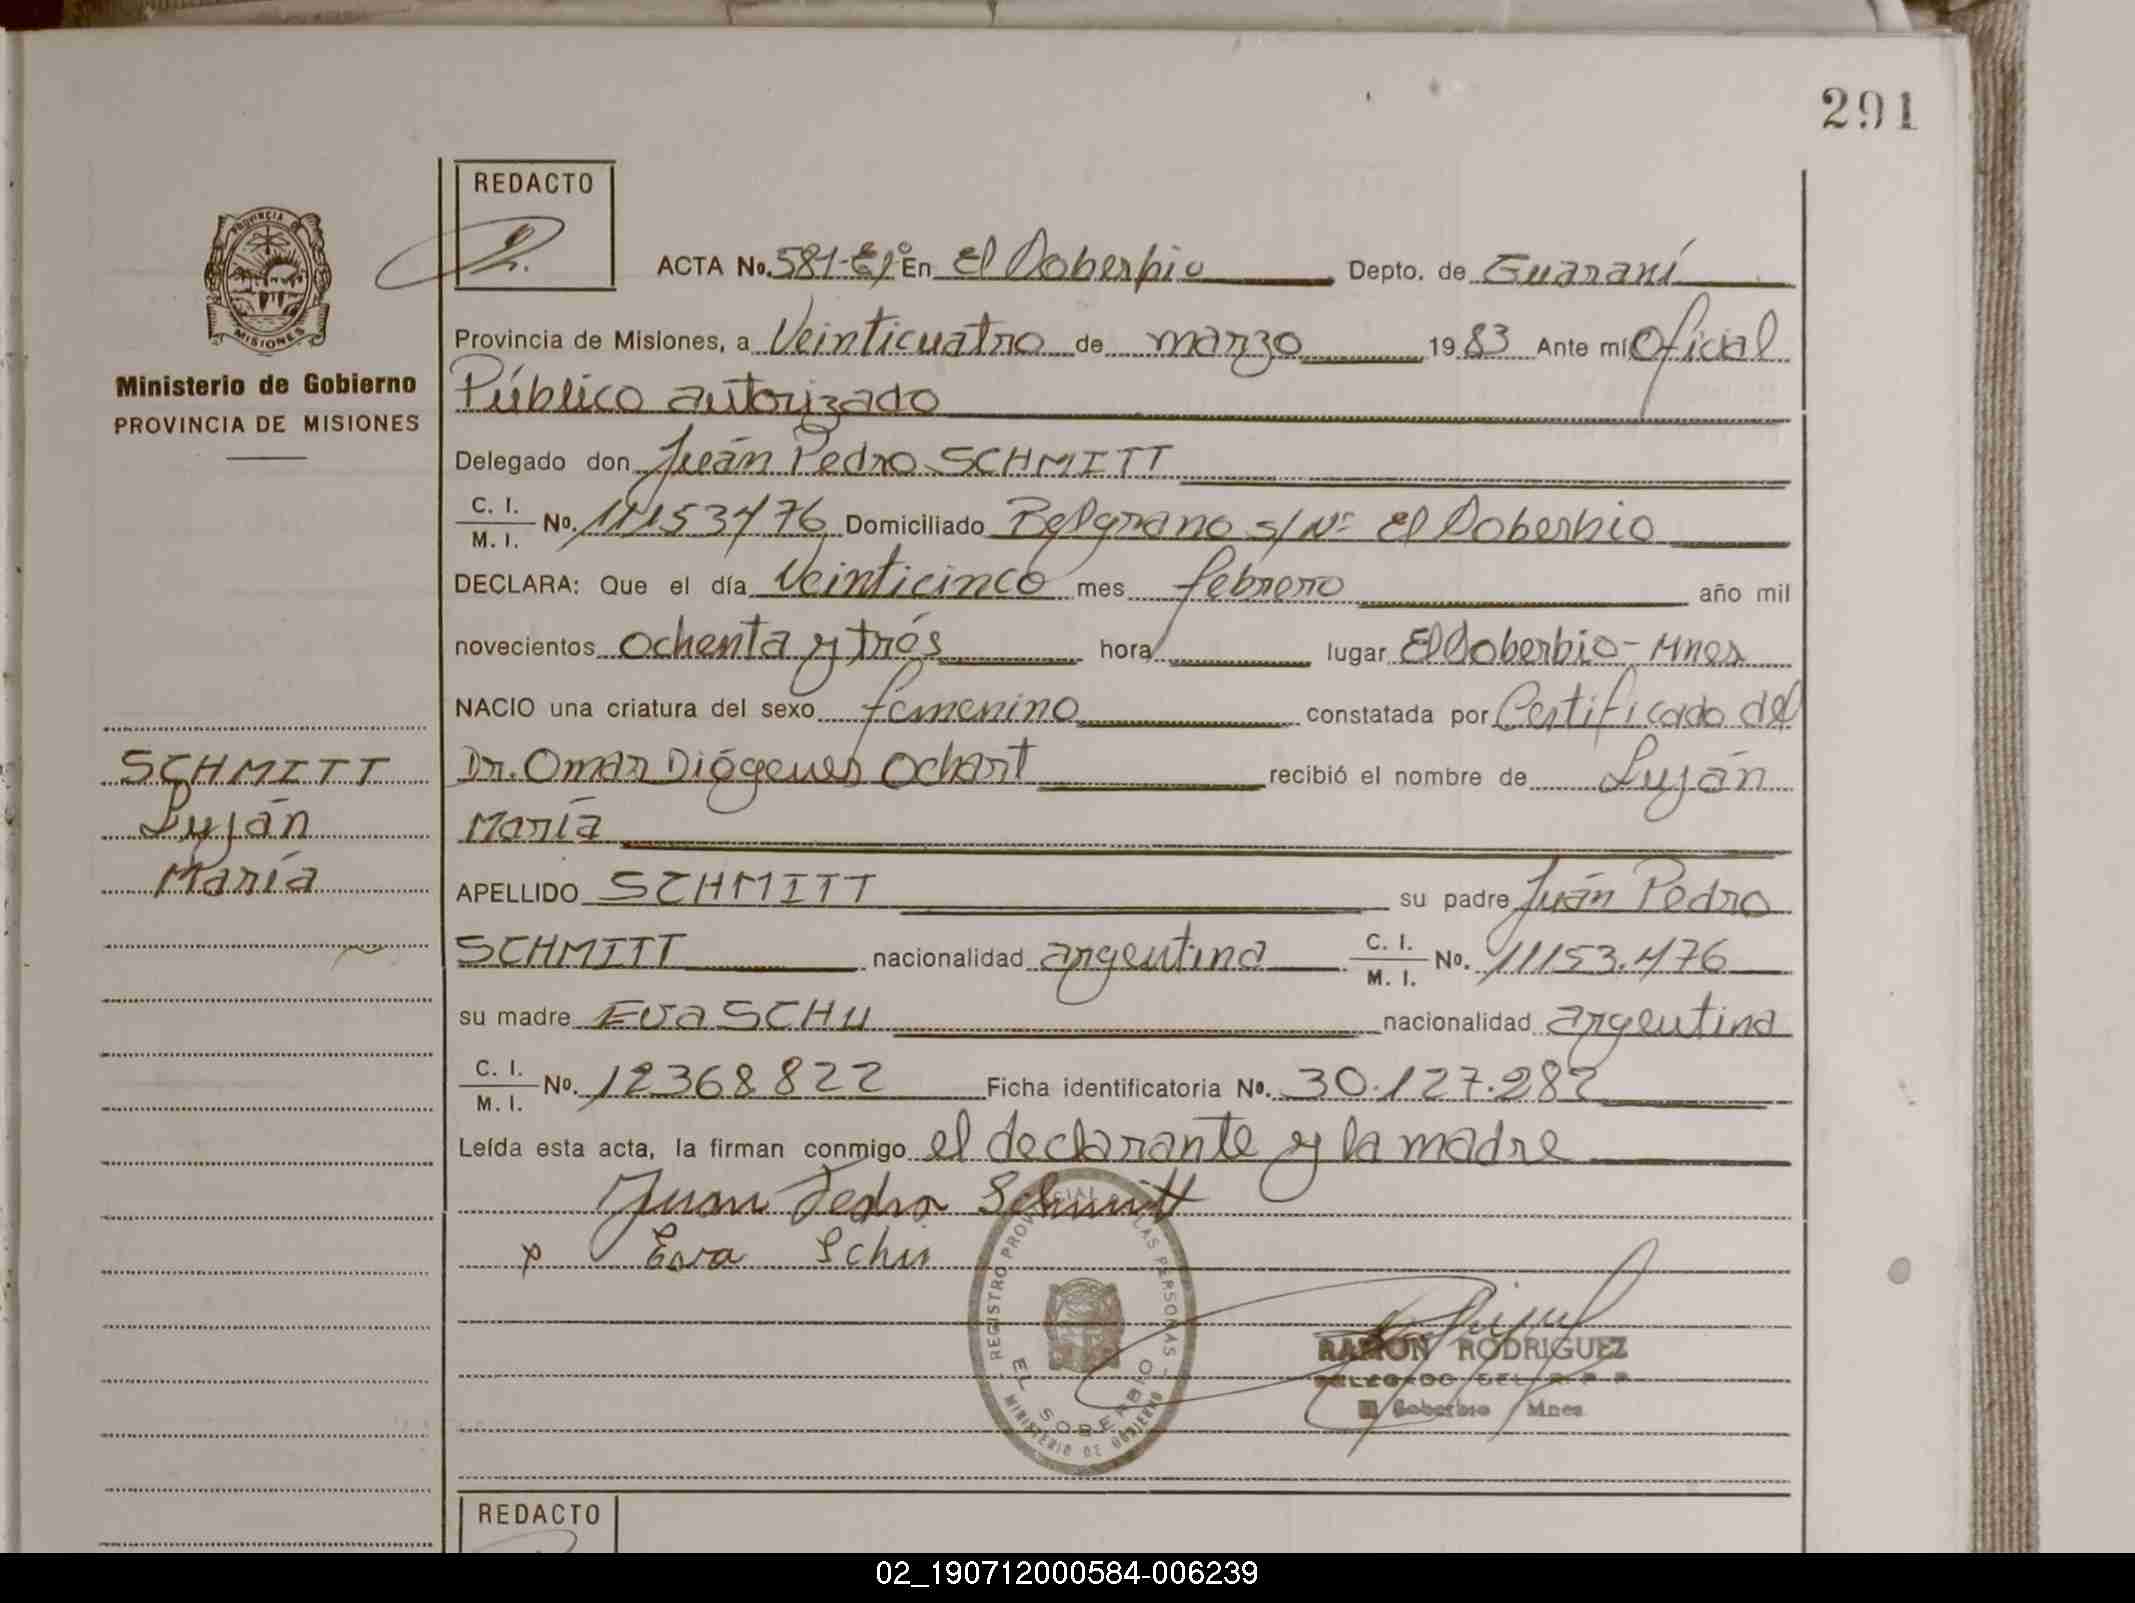 291
REDACTO
ACTA No. 581- En El Soberbio Depto. de Guaraní
Provincia de Misiones, a Veinticuatro de marzo 1983 Ante mí Oficial
Público autorizado
Delegado don Juán Pedro SCHMITT
C. I.
M. I. No. 11153476 Domiciliado Belgrano s/Nº El Soberbio
DECLARA: Que el día Veinticinco mes febrero año mil
novecientos ochenta y trés hora lugar El Soberbio - Mnes
NACIO una criatura del sexo femenino constatada por Certificado del
Dr. Omar Diógenes Ochart recibió el nombre de Luján
María
APELLIDO SCHMITT su padre Juán Pedro
SCHMITT nacionalidad argentina C. I.
M. I. No. 11153.476
su madre Eva SCHU nacionalidad argentina
C. I.
M. I. No. 12368822 Ficha identificatoria No. 30.127.282
Leída esta acta, la firman conmigo el declarante y la madre
Juan Pedro Schmitt
x Eva Schu
PROVINCIA
MISIONES
Ministerio de Gobierno
PROVINCIA DE MISIONES
SCHMITT
Luján
María
REGISTRO PROVINCIAL DE LAS PERSONAS
EL SOBERBIO
MINISTERIO DE GOBIERNO
RAMON RODRIGUEZ
DELEGADO DEL R. P. P.
El Soberbio Mnes
REDACTO
02_190712000584-006239